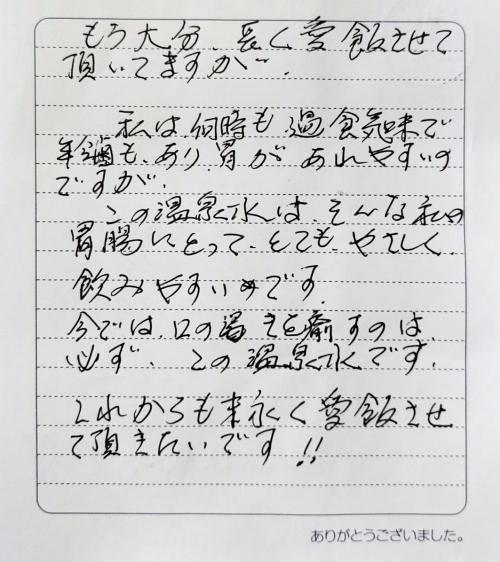 もう大分、長く愛飯させて
頂いてますが、
私は何時も過食気味で
年齢も、あり胃があれやすいの
ですが、
この温泉水は、そんな私の
胃腸にとって、とても、やさしく、
飲みやすいのです。
今では、口の渇きを癒すのは、
必ず、この温泉水です。
これからも末永く愛飯させ
て頂きたいです!!
ありがとうございました。